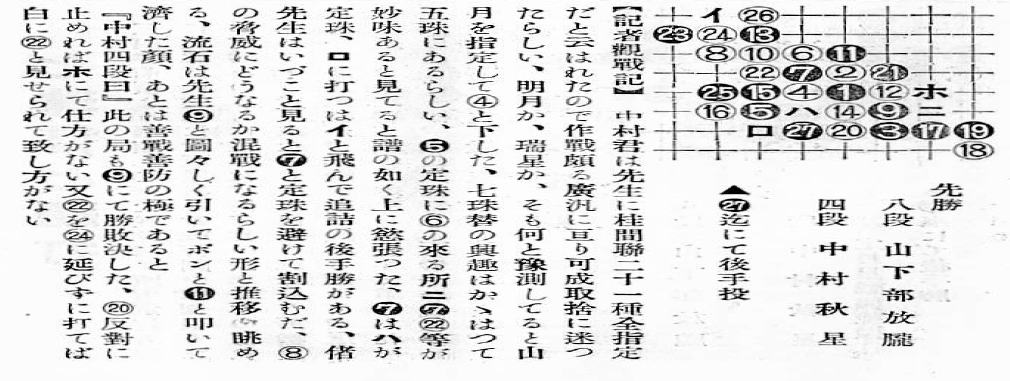 イ ㉖
㉓ ㉔ ⓭
⑧ ⑩ ⑥ ⓫
㉒ ❼ ② ㉑
㉕ ⓯ ④ ❶ ⑫ ホ
⑯ ❺ ハ ⑭ ❾ ニ
ロ ㉗ ⑳ ❸ ⓱ ⓳
⑱
先勝
八段 山下部放朧
四段 中村秋星
▲㉗迄にて後手投
【記者觀戰記】 中村君は先生に桂間聯二十一種全指定
だと云はれたので作戰頗る廣汎に亘り可成取捨に迷つ
たらしい、明月か、瑞星か、そも何と豫測してると山
月を指定して④と下した、七珠替の興趣はかゝはつて
五珠にあるらしい、❺の定珠に⑥の來る所ニ㉒等が
妙味あると見てると譜の如く上に慾張つた、❼はハが
定珠、ロに打つはイと飛んで追詰の後手勝がある、偖
先生はいづこ見ると❼と定珠を避けて割込むだ、⑧
の脅威にどうなるか混戰になるらしい形と推移を眺め
る、流石は先生❾と圖々しく引いてポンと⓫と叩いて
濟した顔、あとは善戰善防の極であると
『中村四段曰』此の局も❾にて勝敗決した、⑳反對に
止めればホにて仕方がない又㉒を㉔に延びずに打てば
白に㉒と見せられて致し方がない